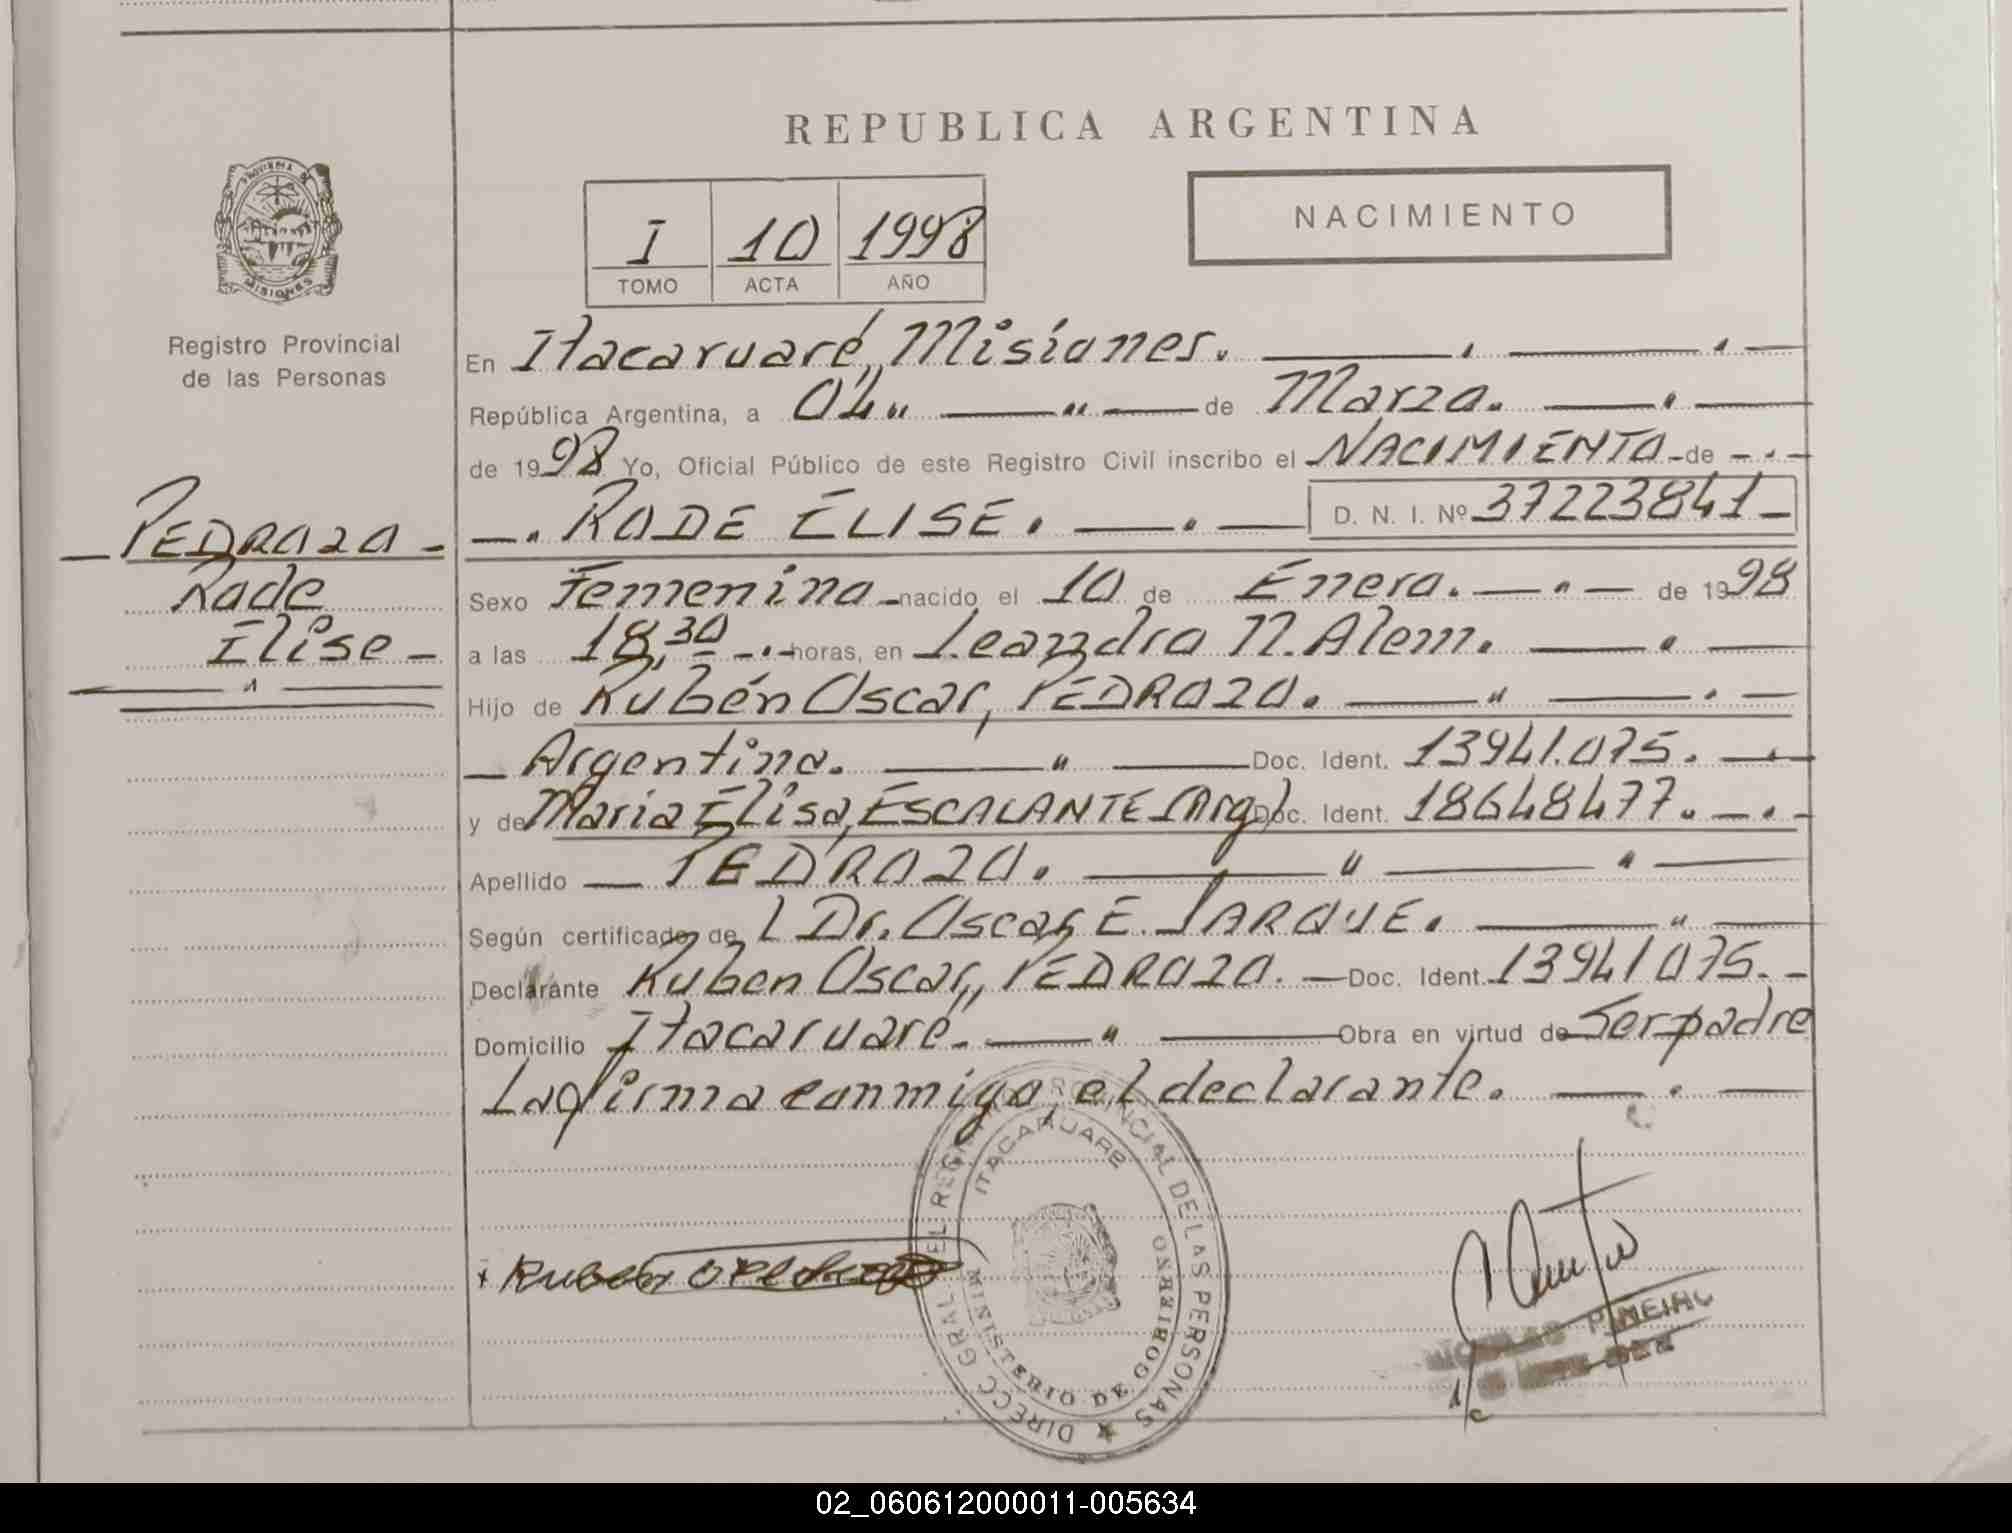 REPUBLICA ARGENTINA
PROVINCIA DE MISIONES
Registro Provincial
de las Personas
I 10 1998
TOMO ACTA AÑO
NACIMIENTO
En Itacaruaré, Misiones.
República Argentina, a 04 de Marzo.
de 1998 Yo, Oficial Público de este Registro Civil inscribo el NACIMIENTO de
RODE ELISE. D. N. I. Nº 37223841
PEDRAZA
Rode
Elise
Sexo Femenino nacido el 10 de Enero. de 1998
a las 18,30 horas, en Leandro N. Alem.
Hijo de Rubén Oscar, PEDRAZA.
Argentino. Doc. Ident. 13941.075.
y de Maria Elisa, ESCALANTE (Arg) Doc. Ident. 18648477.
Apellido PEDRAZA.
Según certificado de l Dr. Oscar E. JARQUE.
Declarante Ruben Oscar, PEDRAZA. Doc. Ident. 13941075.
Domicilio Itacaruaré. Obra en virtud de Ser padre
La firma conmigo, el declarante.
DIRECC GRAL DEL REGISTRO PROVINCIAL DE LAS PERSONAS
ITACARUARE
MINISTERIO DE GOBIERNO
02_060612000011-005634